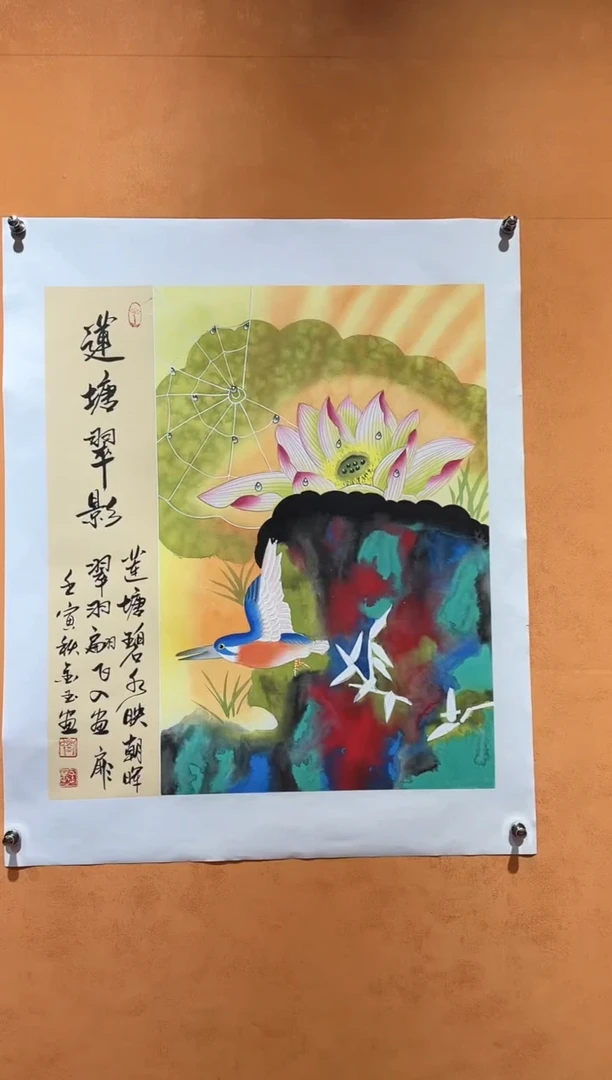 蓮塘翠影
莲塘碧水映朝暉
翠羽翩飞入画廊
壬寅秋金玉画